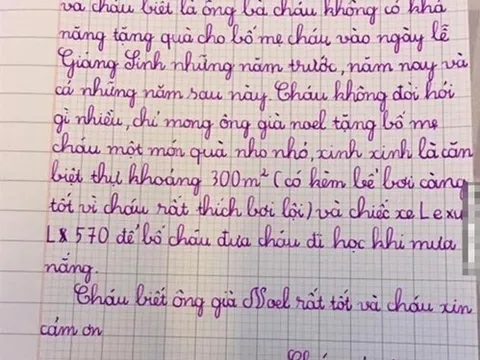 và cháu biết là ông bà cháu không có khả
năng tặng quà cho bố mẹ cháu vào ngày lễ
Giáng Sinh những năm trước, năm nay và
cả những năm sau này. Cháu không đòi hỏi
gì nhiều, chỉ mong ông già noel tặng bố mẹ
cháu một món quà nho nhỏ, xinh xinh là căn
biệt thự khoảng 300m² (có kèm bể bơi càng
tốt vì cháu rất thích bơi lội) và chiếc xe Lexu
LX 570 để bố cháu đưa cháu đi học khi mưa
nắng.
Cháu biết ông già Noel rất tốt và cháu xin
cám ơn